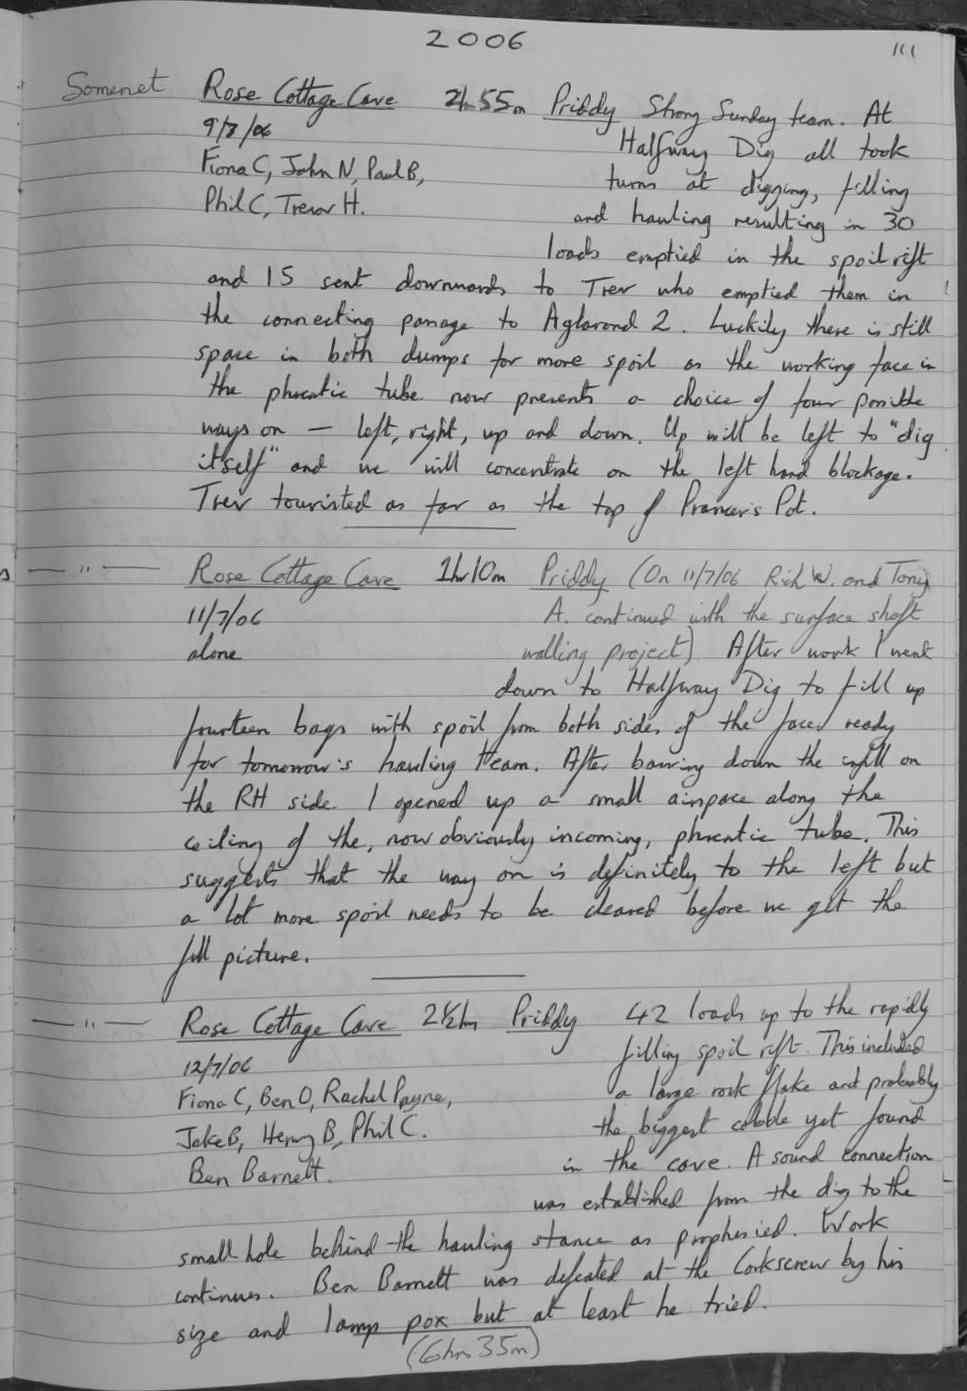 2006
111
Somerset Rose Cottage Cave 2h 55m Priddy Strong Sunday team. At
9/7/06 Halfway Dig all took
Fiona C, John N, Paul B, turns at digging, filling
Phil C, Trevor H. and hauling resulting in 30
loads emptied in the spoil rift
and 15 sent downwards to Trev who emptied them in
the connecting passage to Aglarond 2. Luckily there is still
space in both dumps for more spoil as the working face in
the phreatic tube now presents a choice of four possible
ways on — left, right, up and down. Up will be left to "dig
itself" and we will concentrate on the left hand blockage.
Trev touristed as far as the top of Prancer's Pot.
— " — Rose Cottage Cave 1hr 10m Priddy (On 11/7/06 Rich W. and Tony
11/7/06 A. continued with the surface shaft
alone walling project) After work I went
down to Halfway Dig to fill up
fourteen bags with spoil from both sides of the face ready
for tomorrow's hauling team. After barring down the infill on
the RH side I opened up a small airspace along the
ceiling of the, now obviously incoming, phreatic tube. This
suggests that the way on is definitely to the left but
a lot more spoil needs to be cleared before we get the
full picture.
— " — Rose Cottage Cave 2½hrs Priddy 42 loads up to the rapidly
12/7/06 filling spoil rift. This included
Fiona C, Ben O, Rachel Payne, a large rock flake and probably
Jake B, Henry B, Phil C. the biggest cobble yet found
Ben Barnett. in the cave. A sound connection
was established from the dig to the
small hole behind the hauling stance as prophesied. Work
continues. Ben Barnett was defeated at the Corkscrew by his
size and lamp pox but at least he tried.
(6hrs 35m)